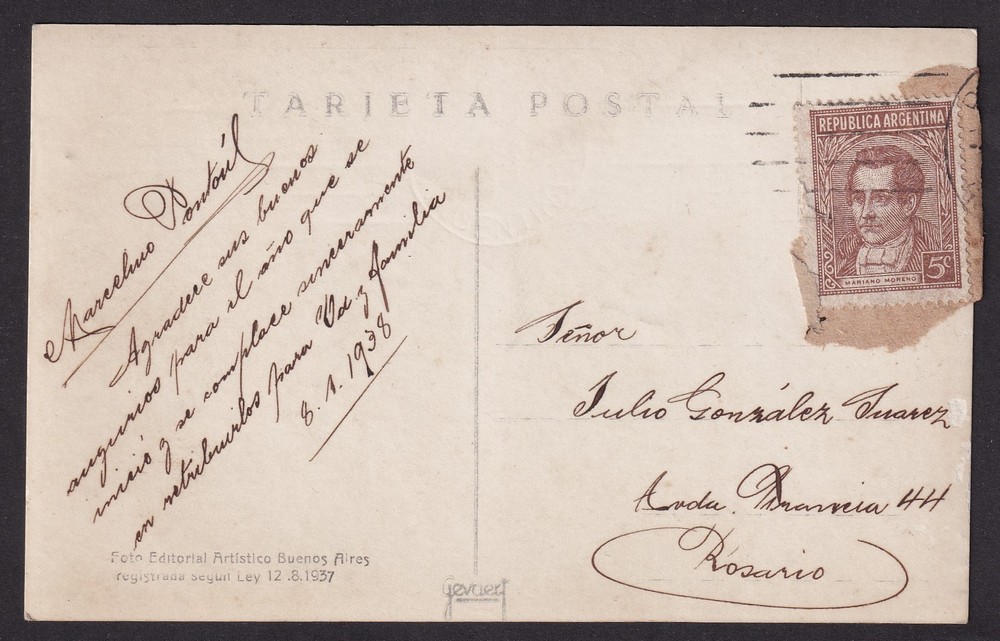 TARJETA POSTAL
Marcelino Pontoúl
Agradece sus buenos
augurios para el año que se
inició y se complace sinceramente
en retribuirlos para Vd y familia
8.1.1938
REPUBLICA ARGENTINA
5c
MARIANO MORENO
Señor
Julio González Suarez
Avda. Francia 44
Rosario
Foto Editorial Artistico Buenos Aires
registrada según Ley 12.8.1937
gevaert